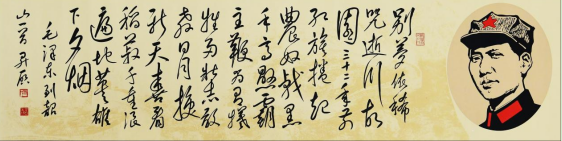 别梦依稀
咒逝川故
园三十二年前
红旗捲起
農奴戟黑
手高懸霸
主鞭为有犧
牲多壮志敢
教日月换
新天喜看
稻菽千重浪
遍地英雄
下夕烟
毛澤东到韶
山一首